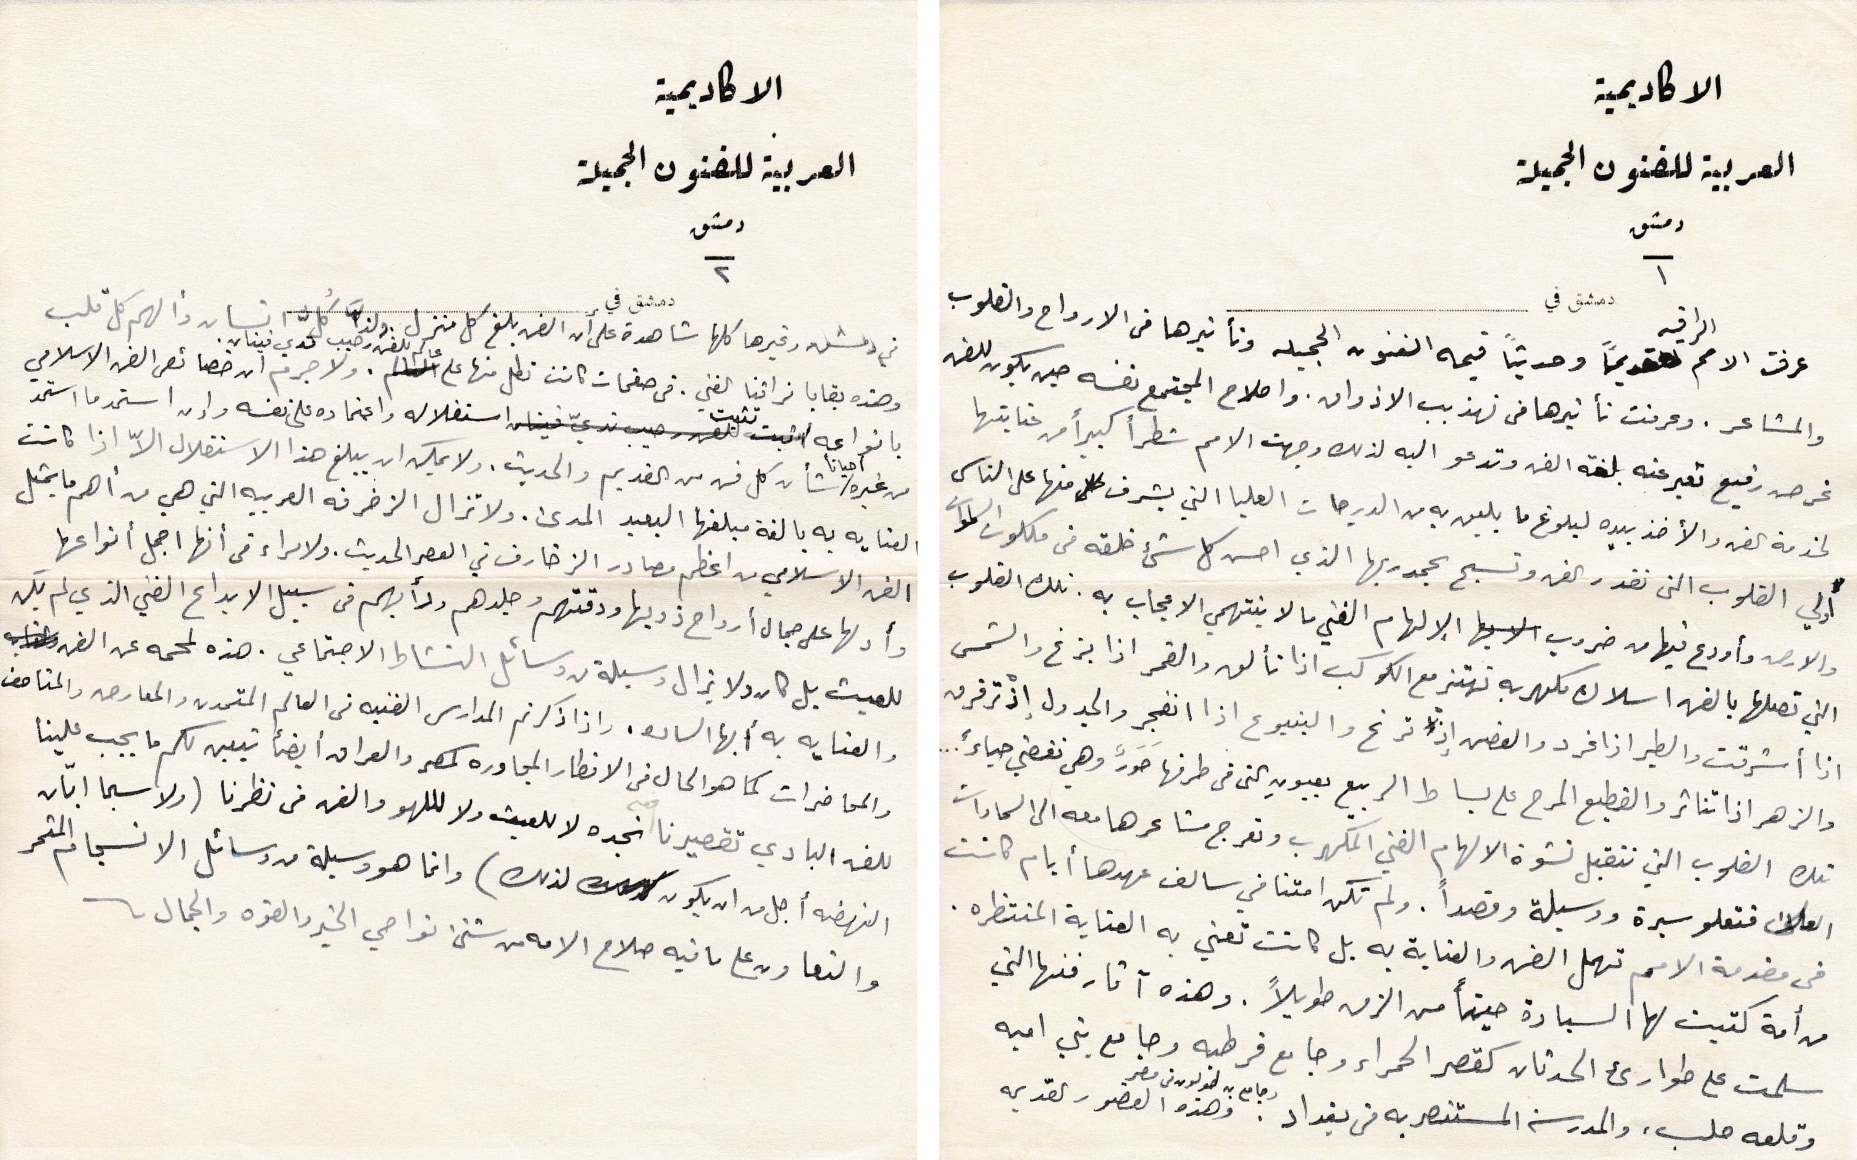 الاكاديمية
العربية للفنون الجميلة
دمشق
١
دمشق في
الراقيه
عرفت الامم قديماً وحديثاً قيمه الفنون الجميله وتأثيرها في الارواح والقلوب
والمشاعر . وعرفت تأثيرها في تهذيب الاذواق . واصلاح المجتمع نفسه حين يكون للفن
غرض رفيع تعبر عنه بلغة الفن وتدعو اليه لذلك وجهت الامم شطراً كبيراً من عنايتها
لخدمة الفن والأخذ بيده ليبلغ ما يليق به من الدرجات العليا التي يشرف منها على الناس
أولي القلوب التي تقدر الفن وتسبح بحمد ربها الذي احسن كل شئ خلقه في ملكوت السموات
والارض وأودع فيها من ضروب الإلهام الفني ما لا ينتهي الاعجاب به . تلك القلوب
التي تصلها بالفن اسلاك مكهربه تهتز مع الكوكب اذا تألق والقمر اذا بزغ والشمس
اذا أشرقت والطير اذا غرد والغصن إذا ترنح والينبوع اذا انفجر والجدول إذا ترقرق
والزهر اذا تناثر والقطيع المرح على بساط الربيع بعيون التي في طرفها حَوَرٌ وهي تغضي حياءً...
تلك القلوب التي تتقبل نشوة الالهام الفني المكهرب وتعرج مشاعرها معه الى السماوات
العلى فتعلو سيرة ووسيلة وقصداً . ولم تكن امتنا في سالف عهدها أيام كانت
في مقدمة الامم تهمل الفن والعناية به بل كانت تعني به العناية المنتظره .
من أمة كتبت لها السيادة حيناً من الزمن طويلاً . وهذه آثار فنها التي
سلمت على طوارئ الحدثان كقصر الحمراء وجامع قرطبه وجامع بني اميه
وجامع بن طولون في مصر
وقلعه حلب، والمدرسة المستنصريه في بغداد . وهذه القصور القديمه
الاكاديمية
العربية للفنون الجميلة
دمشق
٢
دمشق في
في دمشق وغيرها كلها شاهدة على أن الفن بلغ كل منزل ولذّ كُلّ انسان وألهم كل قلب
عالم للفن رحيب ندي فينان .
وهذه بقايا تراثنا الفني . في صفحات كانت تطل منها على . ولا جرم ان خصائص الفن الاسلامي
تثبت
بانواعه للفن رحيب نديّ فينان استقلاله واعتماده على نفسه وإن استمد ما استمد
احيانا
من غيره شأن كل فن من القديم والحديث . ولا يمكن ان يبلغ هذا الاستقلال الاّ اذا كانت
العنايه به بالغة مبلغها البعيد المدى . ولا تزال الزخرفه العربيه التي هي من أهم ما يمثل
الفن الاسلامي من اعظم مصادر الزخارف في العصر الحديث . ولا مراء في أنها اجمل أنواعها
وأدلها على جمال أرواح ذويها ودقتهم وجلدهم ودأبهم في سبيل الابداع الفني الذي لم يكن
للعبث بل كان ولا يزال وسيلة من وسائل النشاط الاجتماعي . هذه لمحه عن الفن
والعنايه به أيها الساده . واذا ذكرتم المدارس الفنيه في العالم المتمدن والمعارض والمتاحف
والمحاضرات كما هو الحال في الاقطار المجاوره كمصر والعراق أيضاً تبين لكم ما يجب علينا
للفن البادي تقصيرنا نجده لا للعبث ولا لللهو والفن في نظرنا ( ولا سيما ابّان
النهضه أجل من ان يكون لذلك ) وانما هو وسيلة من وسائل الانسجام المثمر
والتعاون على ما فيه صلاح الامه من شتى نواحي الخير والقوه والجمال